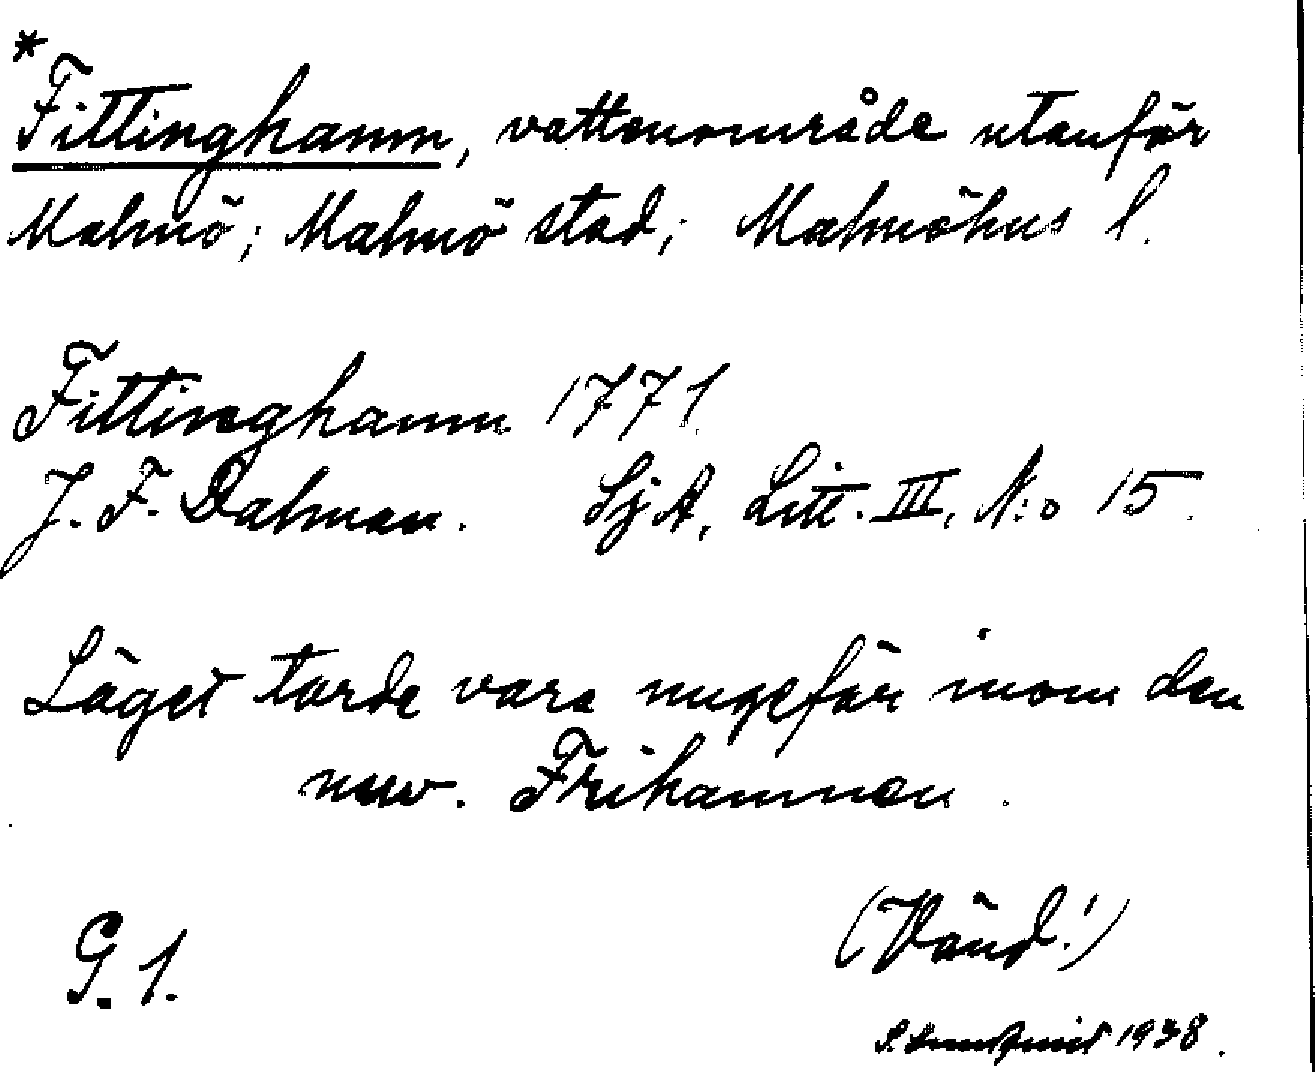 *
Fittinghamn, vattenområde utanför
Malmö; Malmö stad; Malmöhus l.
Fittinghamn 1771.
J. F. Dalman. SjA, Litt. III, N:o 15.
Läget torde vara ungefär inom den
nuv. Frihamnen.
(Vänd!)
G. 1.
1938.